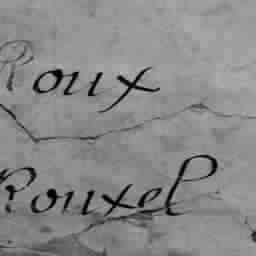 Roux
Rouxel